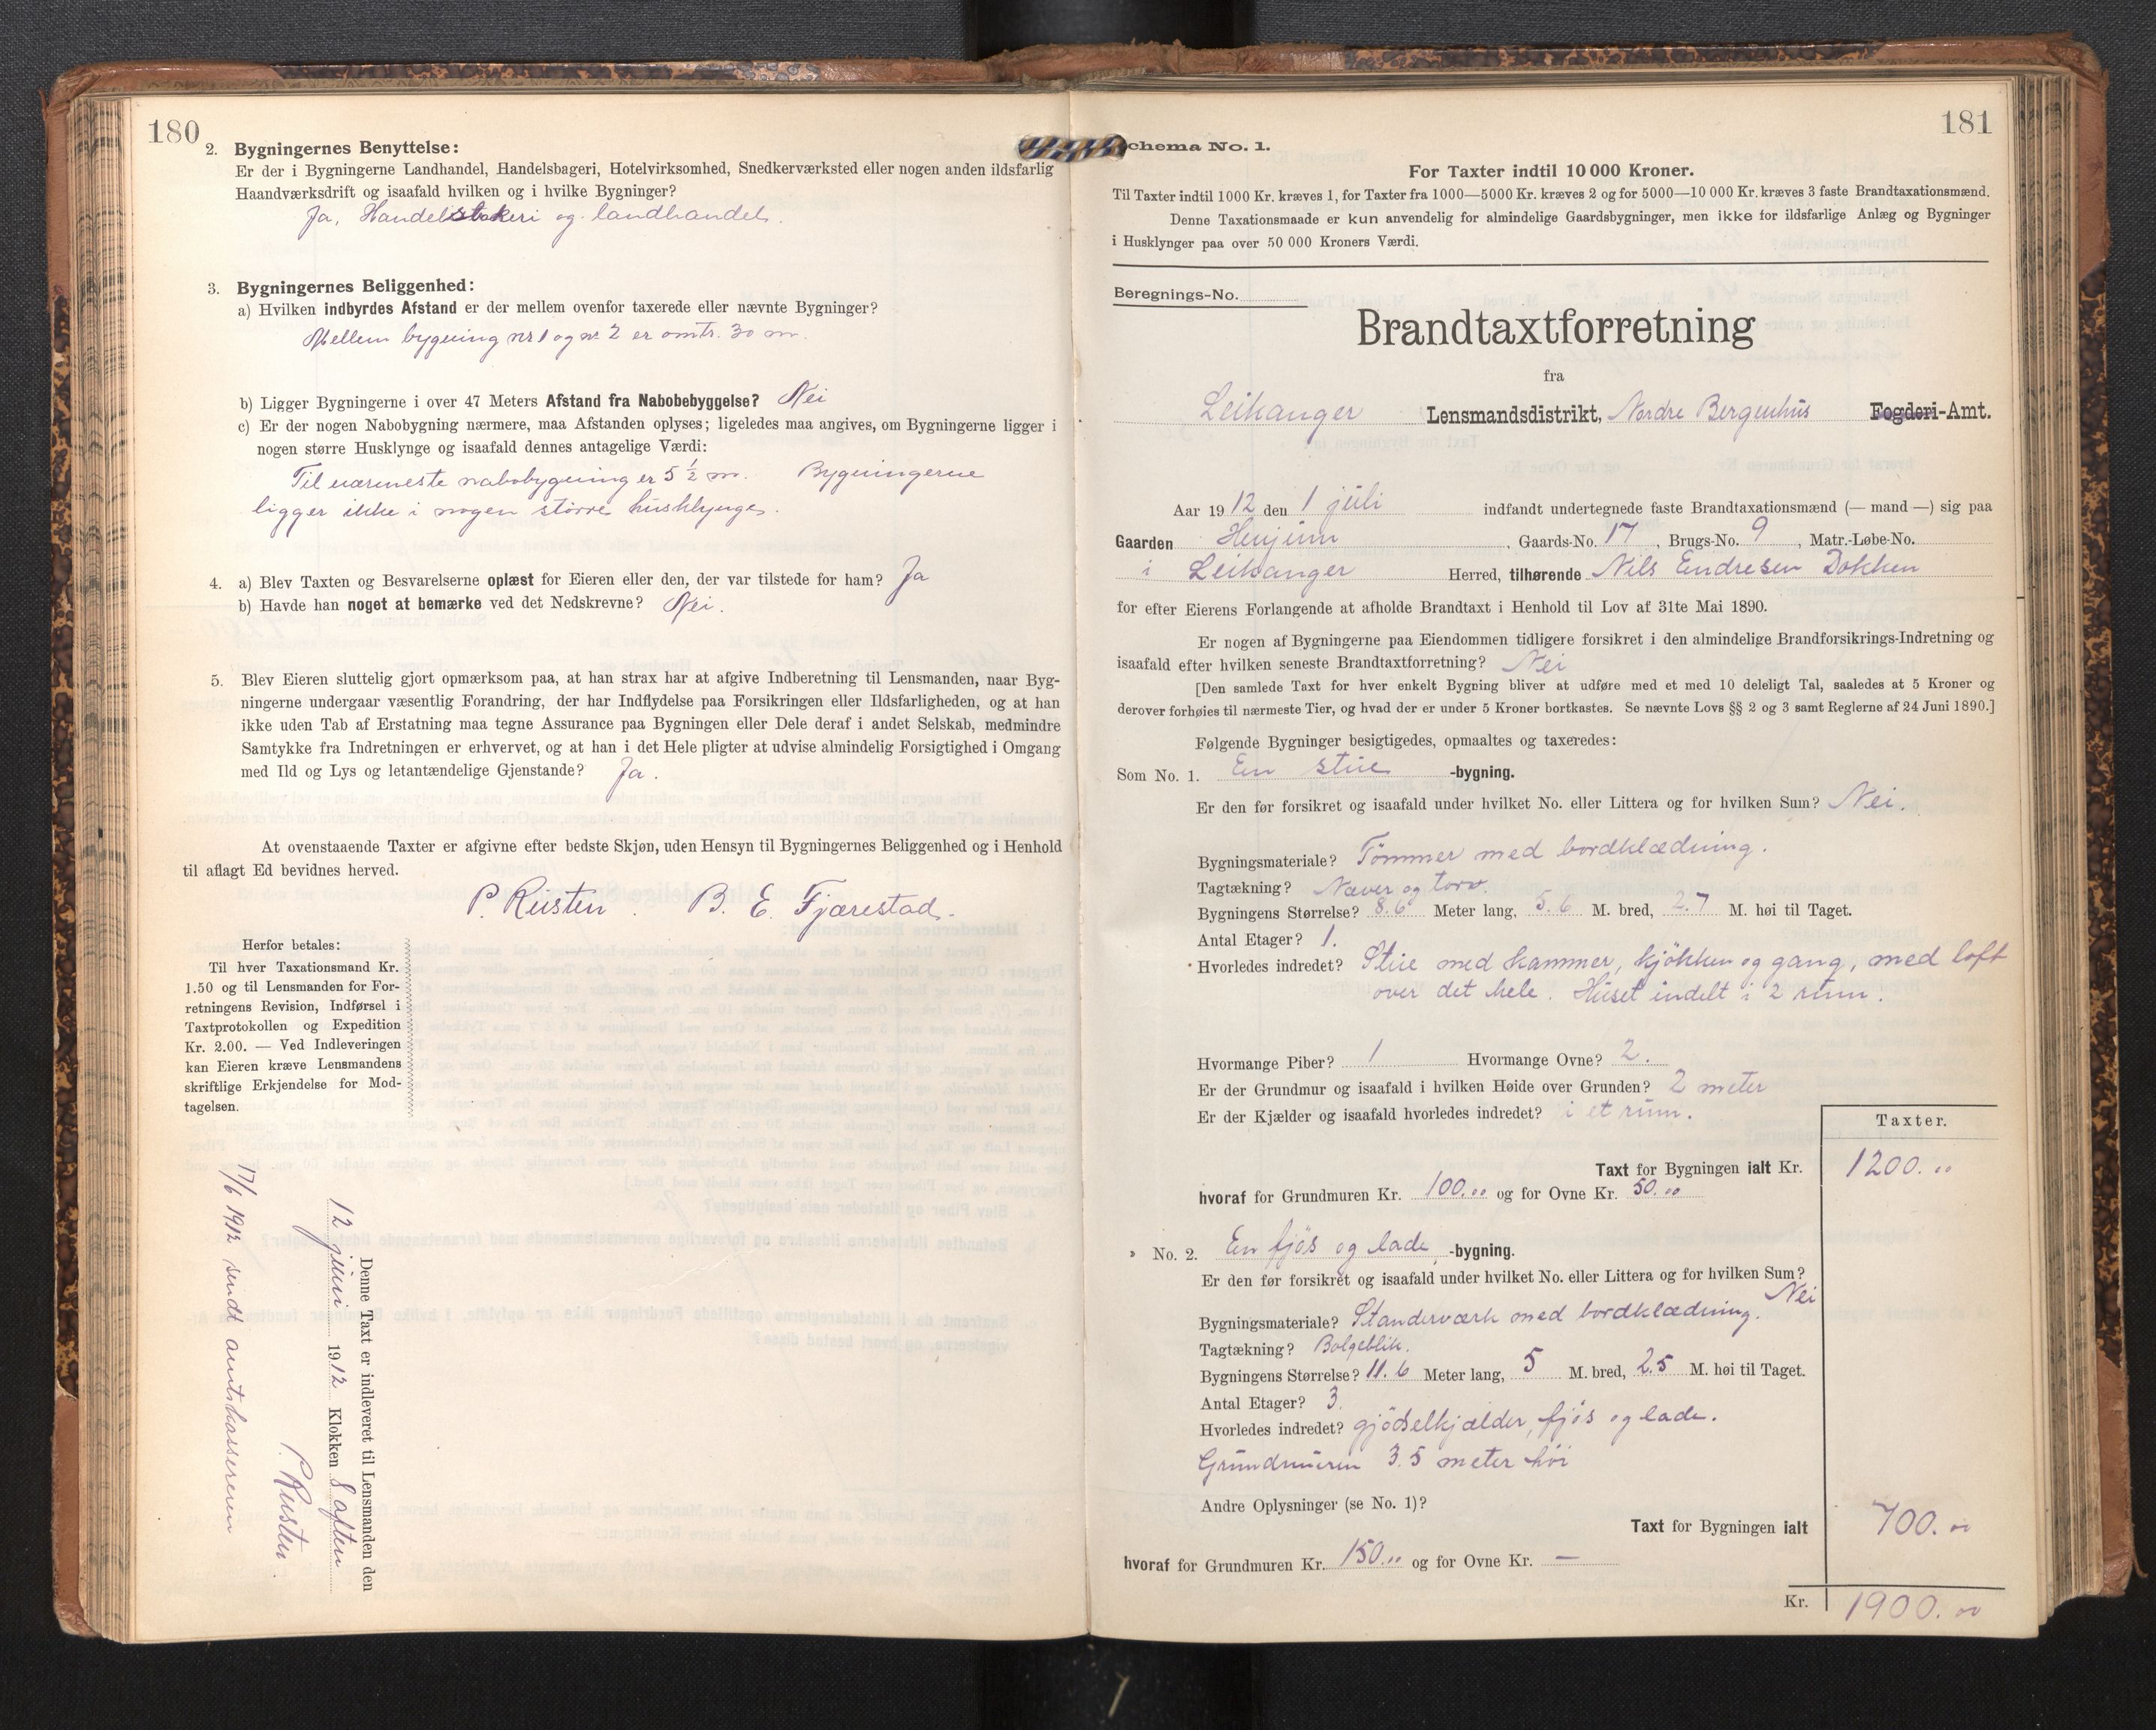 180
2. Bygningernes Benyttelse:
Er der i Bygningerne Landhandel, Handelsbageri, Hotelvirksomhed, Snedkerværksted eller nogen anden ildsfarlig
Haandværksdrift og isaafald hvilken og i hvilke Bygninger?
Ja, Handelsbakeri og landhandel.
3. Bygningernes Beliggenhed:
a) Hvilken indbyrdes Afstand er der mellem ovenfor taxerede eller nævnte Bygninger?
Mellem bygning nr 1 og nr 2 er omtr. 30 m.
b) Ligger Bygningerne i over 47 Meters Afstand fra Nabobebyggelse? Nei
c) Er der nogen Nabobygning nærmere, maa Afstanden oplyses; ligeledes maa angives, om Bygningerne ligger i
nogen større Husklynge og isaafald dennes antagelige Værdi:
Til nærmeste nabobygning er 5 1/2 m. Bygningerne
ligger ikke i nogen större husklynge.
4. a) Blev Taxten og Besvarelserne oplæst for Eieren eller den, der var tilstede for ham? Ja
b) Havde han noget at bemærke ved det Nedskrevne? Nei.
5. Blev Eieren sluttelig gjort opmærksom paa, at han strax har at afgive Indberetning til Lensmanden, naar Byg-
ningerne undergaar væsentlig Forandring, der har Indflydelse paa Forsikringen eller Ildsfarligheden, og at han
ikke uden Tab af Erstatning maa tegne Assurance paa Bygningen eller Dele deraf i andet Selskab, medmindre
Samtykke fra Indretningen er erhvervet, og at han i det Hele pligter at udvise almindelig Forsigtighed i Omgang
med Ild og Lys og letantændelige Gjenstande? Ja.
At ovenstaaende Taxter er afgivne efter bedste Skjøn, uden Hensyn til Bygningernes Beliggenhed og i Henhold
til aflagt Ed bevidnes herved.
P. Rusten. B. E. Fjærestad.
Herfor betales:
Til hver Taxationsmand Kr.
1.50 og til Lensmanden for For-
retningens Revision, Indførsel i
Taxtprotokollen og Expedition
Kr. 2.00. — Ved Indleveringen
kan Eieren kræve Lensmandens
skriftlige Erkjendelse for Mod-
tagelsen.
Denne Taxt er indleveret til Lensmanden den
12 juni 1912 Klokken 8 aften
P. Rusten.
17/6 1912 sendt amtskassereren
181
Schema No. 1.
For Taxter indtil 10 000 Kroner.
Til Taxter indtil 1000 Kr. kræves 1, for Taxter fra 1000—5000 Kr. kræves 2 og for 5000—10 000 Kr. kræves 3 faste Brandtaxationsmænd.
Denne Taxationsmaade er kun anvendelig for almindelige Gaardsbygninger, men ikke for ildsfarlige Anlæg og Bygninger
i Husklynger paa over 50 000 Kroners Værdi.
Beregnings-No.
Brandtaxtforretning
fra
Leikanger Lensmandsdistrikt, Nordre Bergenhus Fogderi-Amt.
Aar 1912 den 1 juli indfandt undertegnede faste Brandtaxationsmænd (— mand —) sig paa
Gaarden Henjum, Gaards-No. 17, Brugs-No. 9, Matr.-Løbe-No.
i Leikanger Herred, tilhørende Nils Endresen Dokken
for efter Eierens Forlangende at afholde Brandtaxt i Henhold til Lov af 31te Mai 1890.
Er nogen af Bygningerne paa Eiendommen tidligere forsikret i den almindelige Brandforsikrings-Indretning og
isaafald efter hvilken seneste Brandtaxtforretning? Nei
[Den samlede Taxt for hver enkelt Bygning bliver at udføre med et med 10 deleligt Tal, saaledes at 5 Kroner og
derover forhøies til nærmeste Tier, og hvad der er under 5 Kroner bortkastes. Se nævnte Lovs §§ 2 og 3 samt Reglerne af 24 Juni 1890.]
Følgende Bygninger besigtigedes, opmaaltes og taxeredes:
Som No. 1. En stue -bygning.
Er den før forsikret og isaafald under hvilket No. eller Littera og for hvilken Sum? Nei.
Bygningsmateriale? Tömmer med bordklædning.
Tagtækning? Næver og torv.
Bygningens Størrelse? 8.6 Meter lang, 5.6 M. bred, 2.7 M. høi til Taget.
Antal Etager? 1.
Hvorledes indredet? Stue med kammer, kjökken og gang, med loft
over det hele. Huset indelt i 2 rum.
Hvormange Piber? 1 Hvormange Ovne? 2.
Er der Grundmur og isaafald i hvilken Høide over Grunden? 2 meter
Er der Kjælder og isaafald hvorledes indredet? i et rum.
Taxter.
Taxt for Bygningen ialt Kr. 1200.00
hvoraf for Grundmuren Kr. 100.00 og for Ovne Kr. 50.00
» No. 2. En fjös og lade -bygning.
Er den før forsikret og isaafald under hvilket No. eller Littera og for hvilken Sum?
Nei
Bygningsmateriale? Standerværk med bordklædning.
Tagtækning? Bolgeblik.
Bygningens Størrelse? 11.6 Meter lang, 5 M. bred, 2.5 M. høi til Taget.
Antal Etager? 3.
Hvorledes indredet? gjödselkjælder, fjös og lade.
Grundmuren 3.5 meter höi
Andre Oplysninger (se No. 1)?
Taxt for Bygningen ialt 700.00
hvoraf for Grundmuren Kr. 150.00 og for Ovne Kr. —
Kr. 1900.00